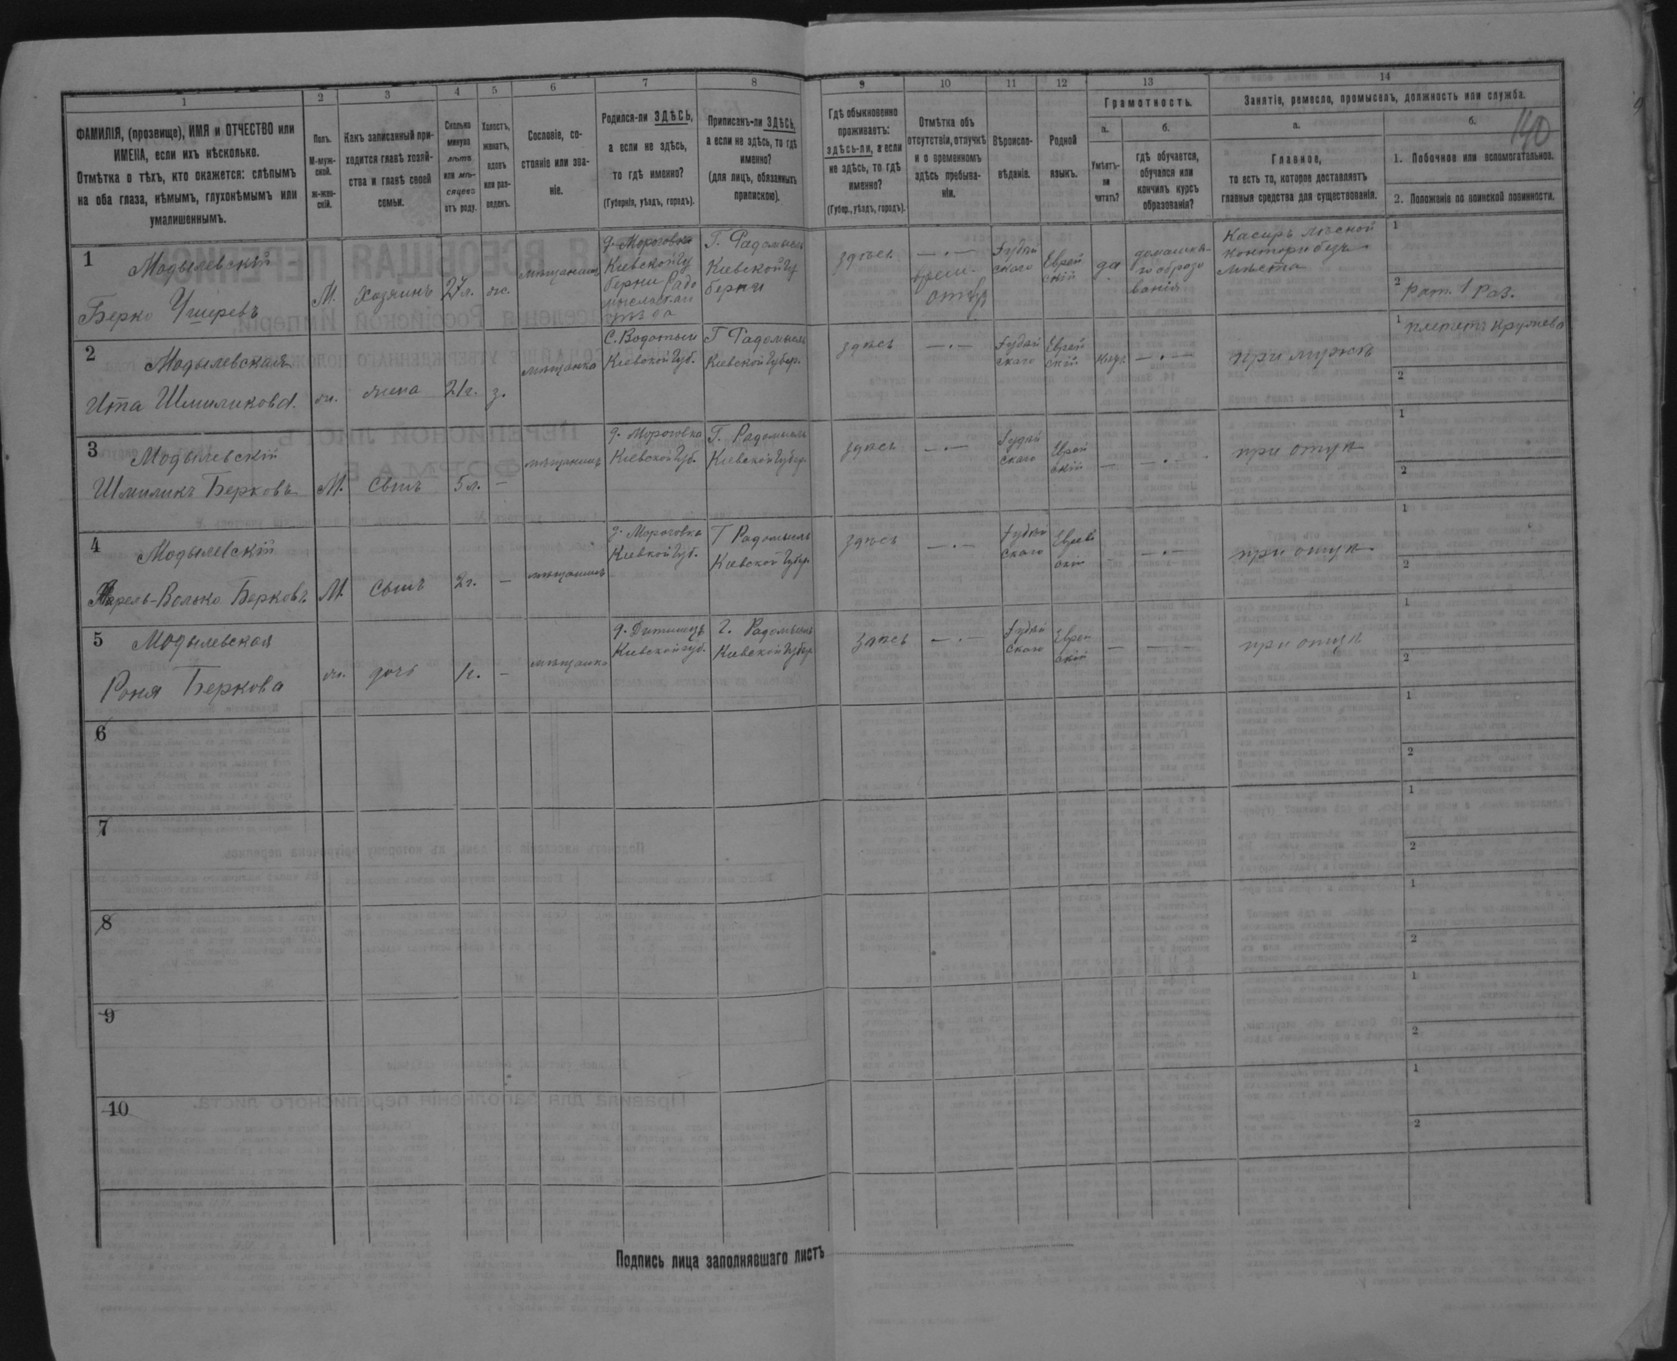 1 2 3 4 5 6 7 8 9 10 11 12 13 14
ФАМИЛІЯ, (прозвище), ИМЯ и ОТЧЕСТВО или
ИМЕНА, если ихъ нѣсколько.
Отмѣтка о тѣхъ, кто окажется: слѣпымъ
на оба глаза, нѣмымъ, глухонѣмымъ или
умалишеннымъ.
Полъ.
М-муж-
ской.
Ж-жен-
скій.
Какъ записанный при-
ходится главѣ хозяй-
ства и главѣ своей
семьи.
Сколько
минуло
лѣтъ
или мѣ-
сяцевъ
отъ роду.
Холостъ,
женатъ,
вдовъ
или раз-
веденъ.
Сословіе, со-
стояніе или зва-
ніе.
Родился-ли ЗДѢСЬ,
а если не здѣсь,
то гдѣ именно?
(Губернія, уѣздъ, городъ).
Приписанъ-ли ЗДѢСЬ,
а если не здѣсь, то гдѣ
именно?
(для лицъ, обязанныхъ
припискою).
Гдѣ обыкновенно
проживаетъ:
здѣсь-ли, а если
не здѣсь, то гдѣ
именно?
(Губер., уѣздъ, городъ).
Отмѣтка объ
отсутствіи, отлучкѣ
и о временномъ
здѣсь пребыва-
ніи.
Вѣроиспо-
вѣданіе.
Родной
языкъ.
Грамотность.
а.
Умѣетъ-
ли
читать?
б.
гдѣ обучается,
обучался или
кончилъ курсъ
образованія?
Занятія, ремесло, промыселъ, должность или служба.
а.
Главное,
то есть то, которое доставляетъ
главныя средства для существованія.
б.
1. Побочное или вспомогательное.
2. Положеніе по воинской повинности.
140
1
Модылевскій
Берко Ушеревъ
М.
Хозяинъ
27л.
ж.
мѣщанинъ
Кіевской Гу
берніи Радо
мысльскаго
уѣзда
Г. Радомысль
Кіевской Гу
берніи
здѣсь
— . —
врем.
отсут
Іудей
скаго
Еврей
скій
да
домашня-
го образо
ванія
Касиръ лѣсной
конторы безъ
мѣста
1
2
Рат. 1 Раз.
2
Модылевская
Ита Шмиликова.
ж.
жена
21г.
з.
мѣщанка
С. Водотыи
Кіевской Губ.
Г Радомысль
Кіевской Губер.
здѣсь
— . —
Іудей
скаго
Еврей
скій
— . —
при мужѣ
1
плететъ кружева
2
3
Модылевскій
Шмиликъ Берковъ
М.
Сынъ
5л.
—
мѣщанинъ
Кіевской Губ.
Г. Радомысль
Кіевской Губер
здѣсь
— . —
Іудей
скаго
Еврей
скій
—
— . —
при отцѣ
1
2
4
Модылевскій
Волько Берковъ
М.
Сынъ
2г.
—
мѣщанинъ
Г Радомысль
Кіевской Губер
здѣсь
— . —
Іудей
скаго
Еврей
скій
— . —
при отцѣ
1
2
5
Модылевская
Роня Беркова
ж.
дочь
1г.
—
мѣщанка
Кіевской Губ.
г. Радомысль
Кіевской Губер
здѣсь
— . —
Іудей
скаго
Еврей
скій
—
— . —
при отцѣ
1
2
6
1
2
7
1
2
8
1
2
9
1
2
10
1
2
Подпись лица заполнявшаго листъ